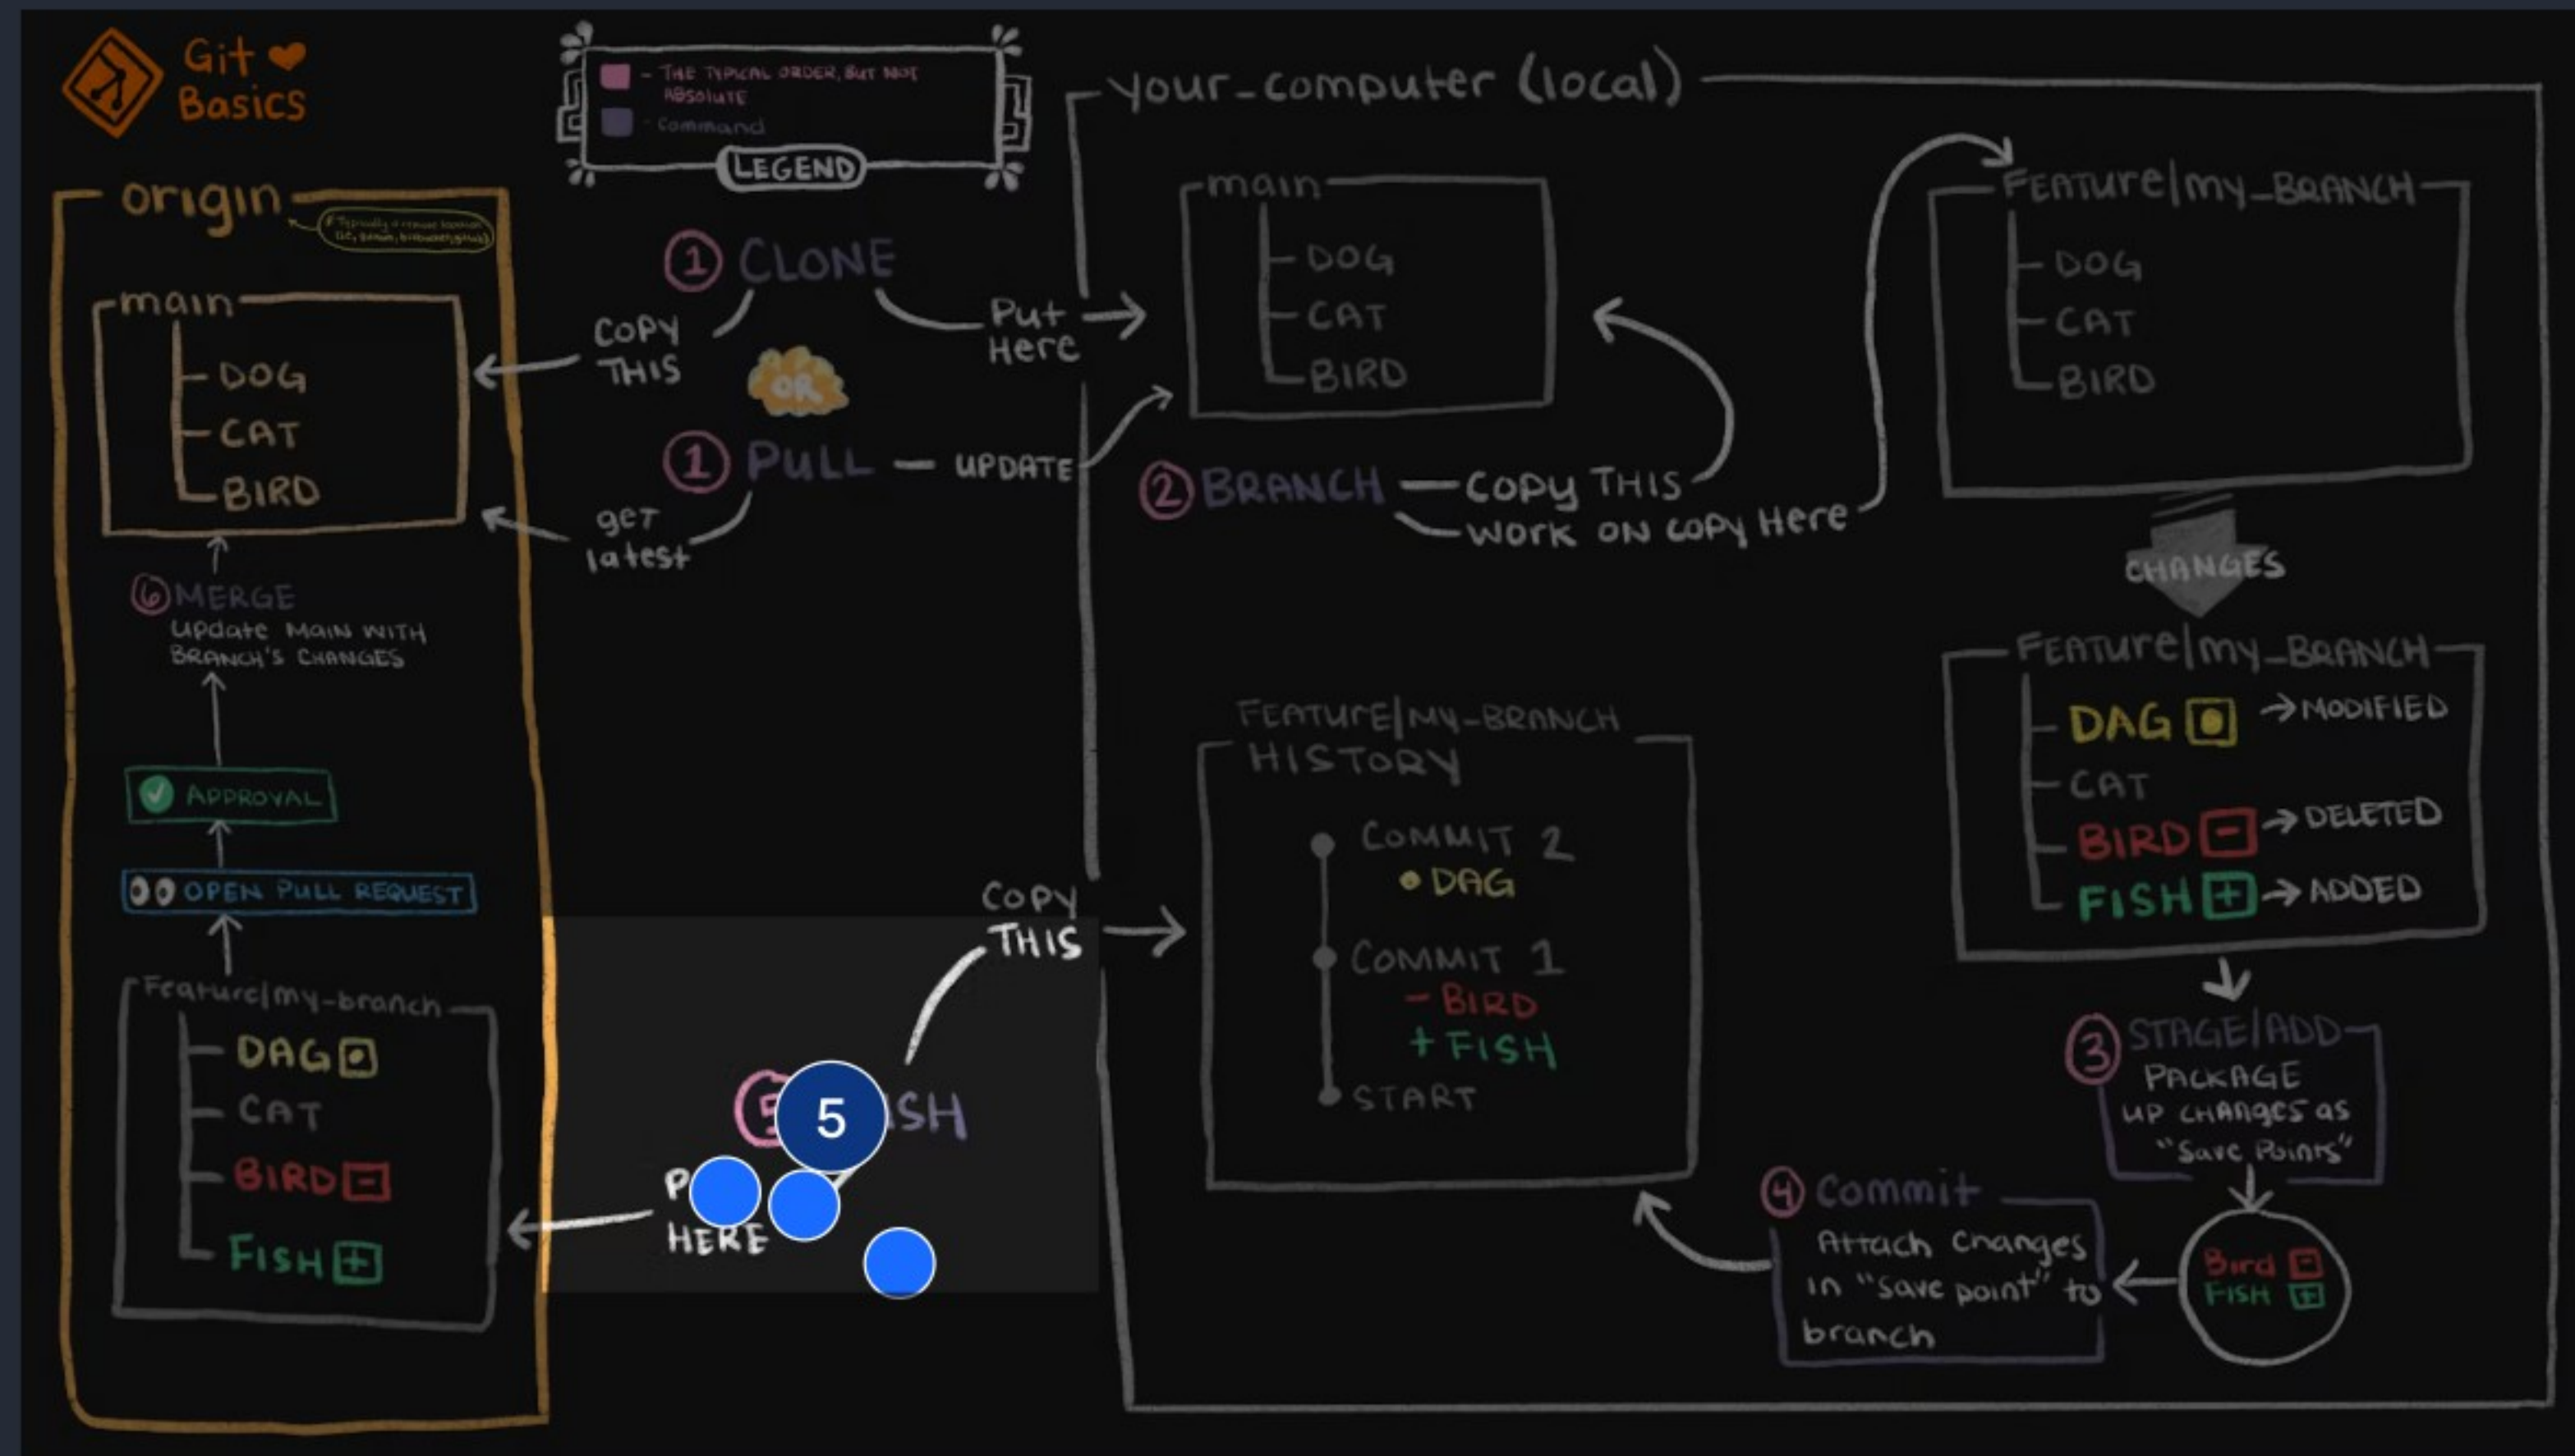 Git
Basics
- THE TYPICAL ORDER, BUT NOT
ABSOLUTE
- Command
LEGEND
origin
main
DOG
CAT
BIRD
6 MERGE
update MAIN WITH
BRANCH'S CHANGES
APPROVAL
OPEN PULL REQUEST
Feature/my-branch
DAG
CAT
BIRD -
FISH +
1 CLONE
COPY
THIS
Put
Here
OR
1 PULL — UPDATE
get
latest
COPY
THIS
5
HERE
your_computer (local)
main
DOG
CAT
BIRD
2 BRANCH — COPY THIS
WORK ON COPY Here
FEATURE/my_BRANCH
DOG
CAT
BIRD
CHANGES
FEATURE/my_BRANCH
DAG → MODIFIED
CAT
BIRD - → DELETED
FISH + → ADDED
3 STAGE/ADD
PACKAGE
UP CHANGES as
"Save Points"
Bird -
FISH +
4 Commit
Attach Changes
in "save point" to
branch
FEATURE/MY-BRANCH
HISTORY
COMMIT 2
• DAG
COMMIT 1
- BIRD
+ FISH
START